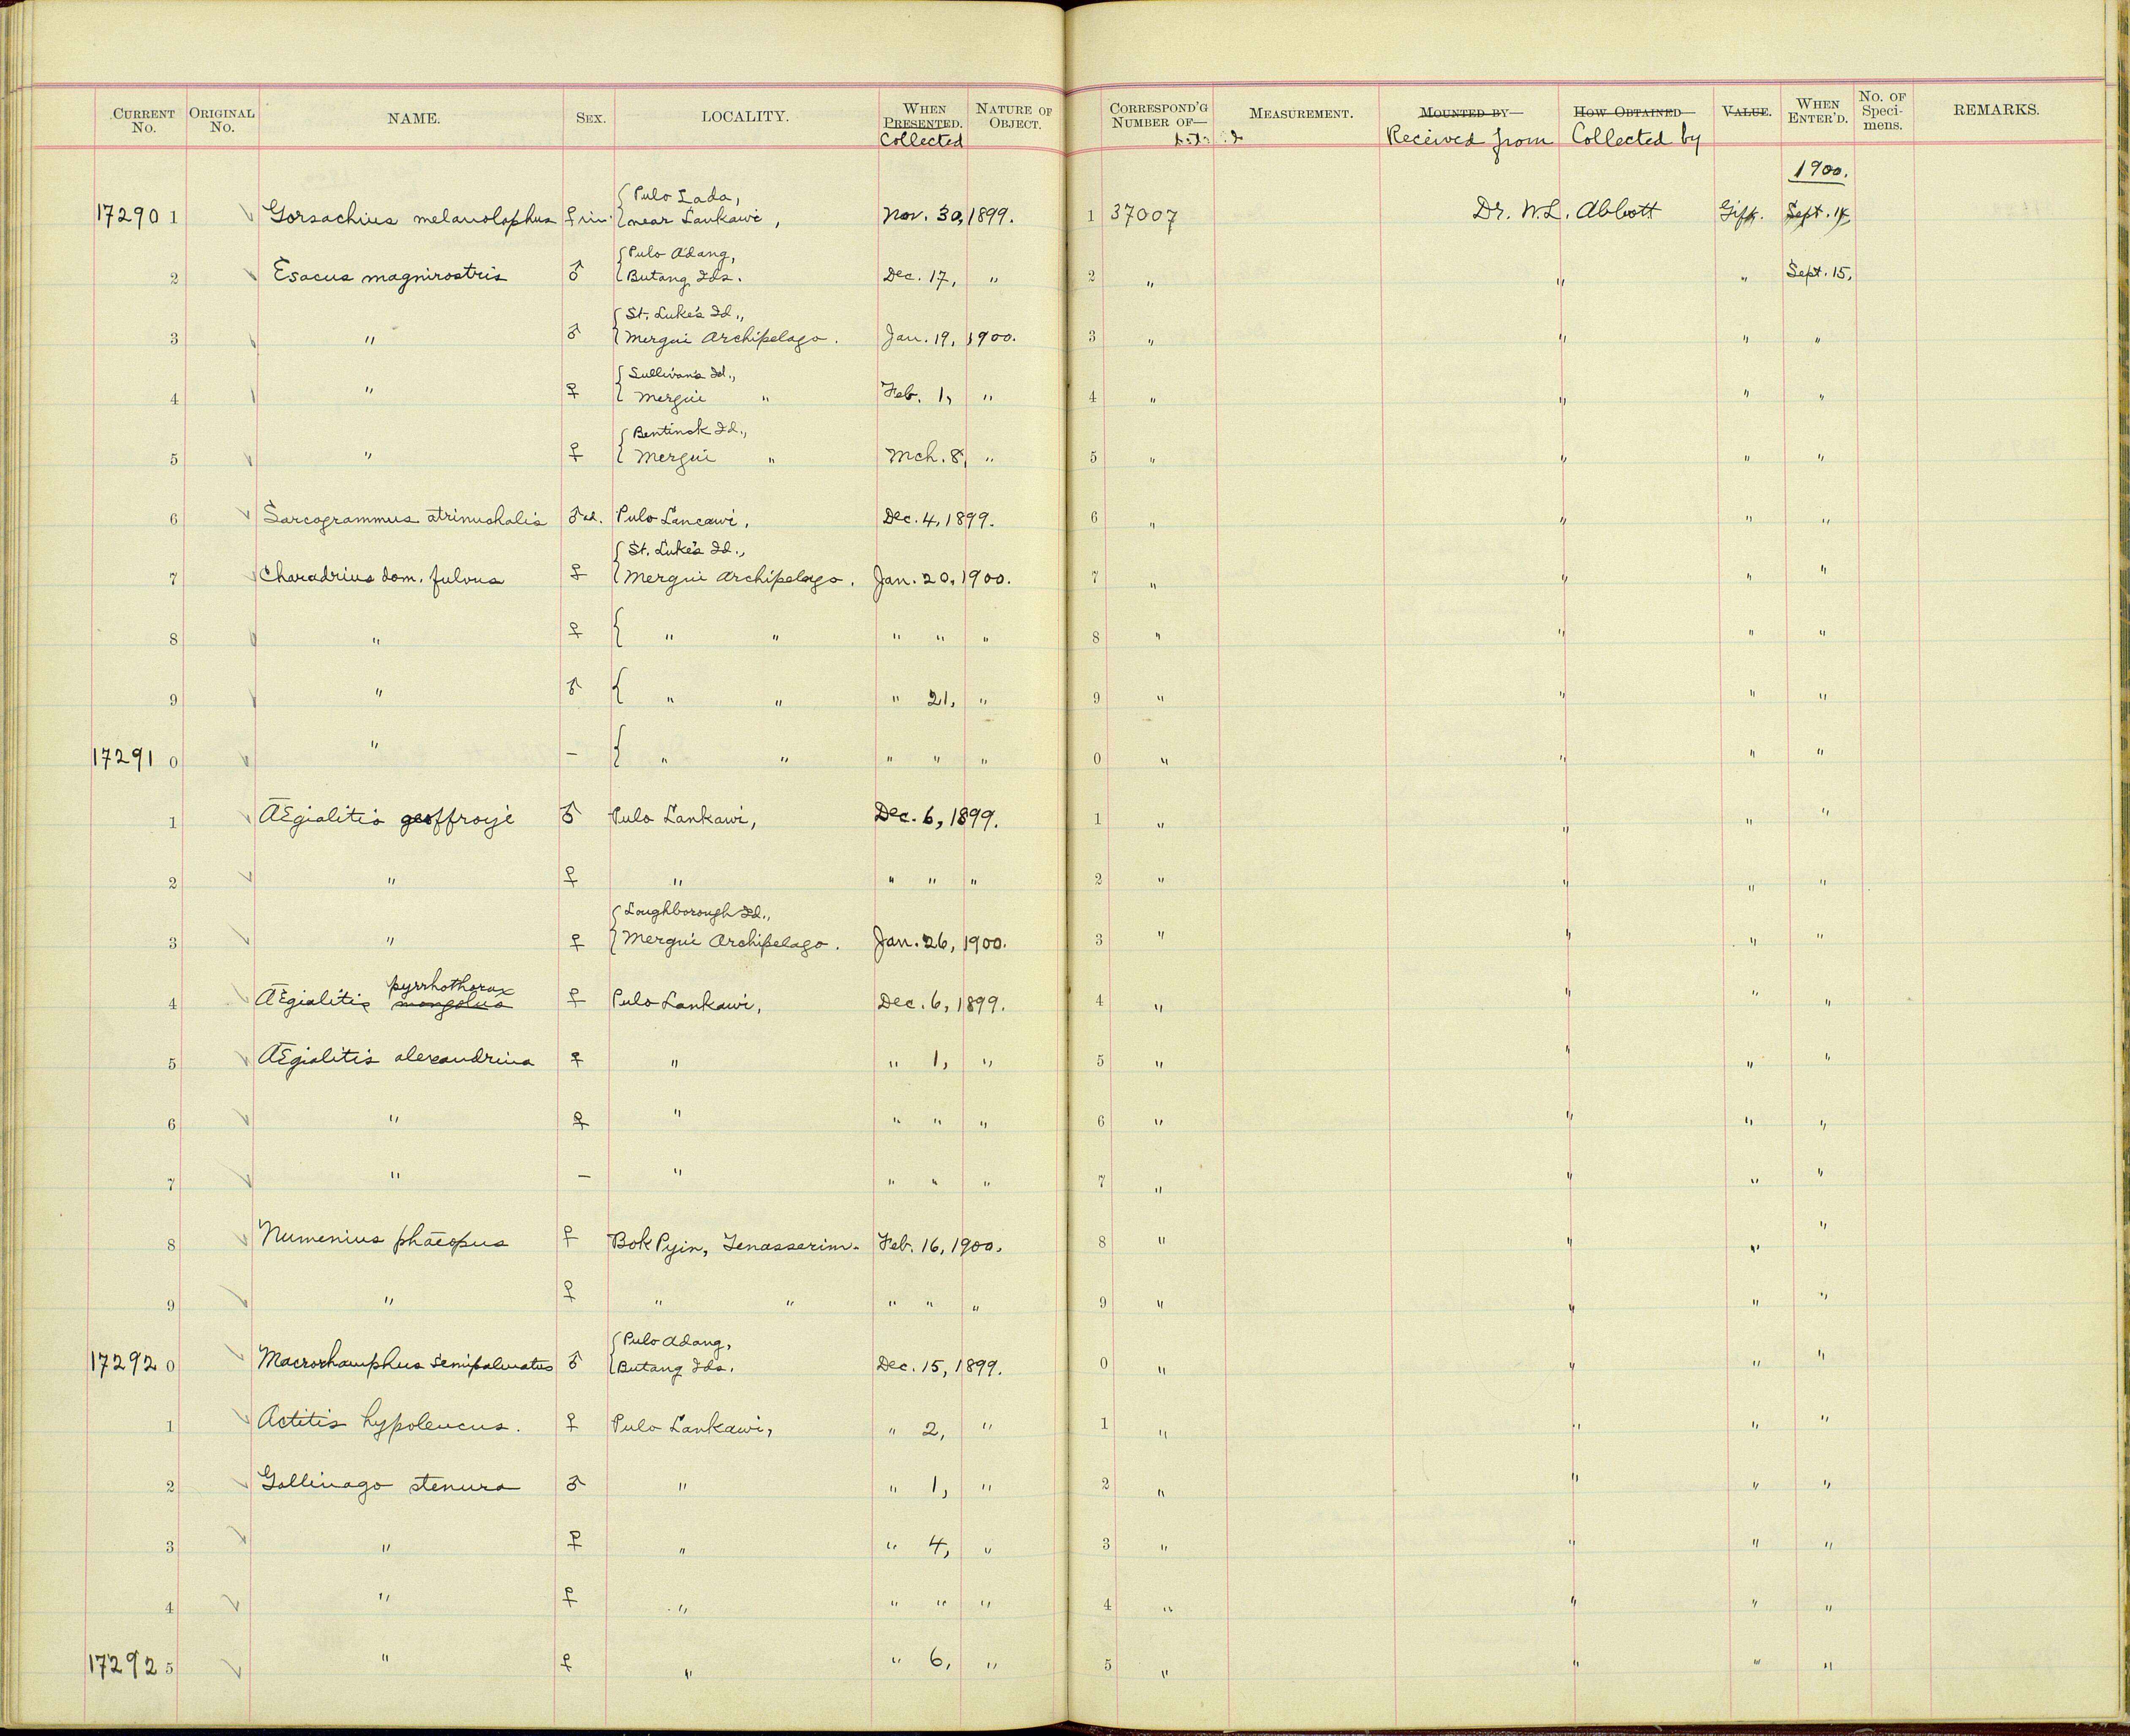 CURRENT No. ORIGINAL No. NAME. SEX. LOCALITY. WHEN PRESENTED. Collected NATURE OF OBJECT. CORRESPOND'G NUMBER OF— MEASUREMENT. MOUNTED BY— Received from HOW OBTAINED Collected by VALUE. WHEN ENTER'D. No. OF Speci-mens. REMARKS.
1900.
{Pulo Lada,
17290 1 Gorsachius melanolophus ♀ im. near Lankawi, Nov. 30, 1899. 1 37007 Dr. W.L. Abbott Gift. Sept. 14
{Pulo Adang,
2 Esacus magnirostris ♂ Butang Ids. Dec. 17, " 2 " " " Sept. 15,
{St. Luke's Id.,
3 " ♂ Mergui Archipelago. Jan. 19, 1900. 3 " " " "
{Sullivan's Id.,
4 " ♀ Mergui " Feb. 1, " 4 " " " "
{Bentinck Id.,
5 " ♀ Mergui " Mch. 8, " 5 " " " "
6 Sarcogrammus atrinuchalis ♂ ad. Pulo Lancawi, Dec. 4, 1899. 6 " " " "
{St. Luke's Id.,
7 Charadrius dom. fulvus ♀ Mergui Archipelago. Jan. 20, 1900. 7 " " " "
8 " ♀ { " " " " " 8 " " " "
9 " ♂ { " " " 21, " 9 " " " "
17291 0 " – { " " " " " 0 " " " "
1 Ægialitis geoffroyi ♂ Pulo Lankawi, Dec. 6, 1899. 1 " " " "
2 " ♀ " " " " 2 " " " "
{Loughborough Id.,
3 " ♀ Mergui Archipelago. Jan. 26, 1900. 3 " " " "
pyrrhothorax
4 Ægialitis mongolus ♀ Pulo Lankawi, Dec. 6, 1899. 4 " " " "
5 Ægialitis alexandrina ♀ " " 1, " 5 " " " "
6 " ♀ " " " " 6 " " " "
7 " – " " " " 7 " " " "
8 Numenius phæopus ♀ Bok Pyin, Tenasserim. Feb. 16, 1900. 8 " " " "
9 " ♀ " " " " " 9 " " " "
{Pulo Adang,
17292 0 Macrorhamphus semipalmatus ♂ Butang Ids. Dec. 15, 1899. 0 " " " "
1 Actitis hypoleucus. ♀ Pulo Lankawi, " 2, " 1 " " " "
2 Gallinago stenura ♂ " " 1, " 2 " " " "
3 " ♀ " " 4, " 3 " " " "
4 " ♀ " " " " 4 " " " "
17292 5 " ♀ " " 6, " 5 " " " "